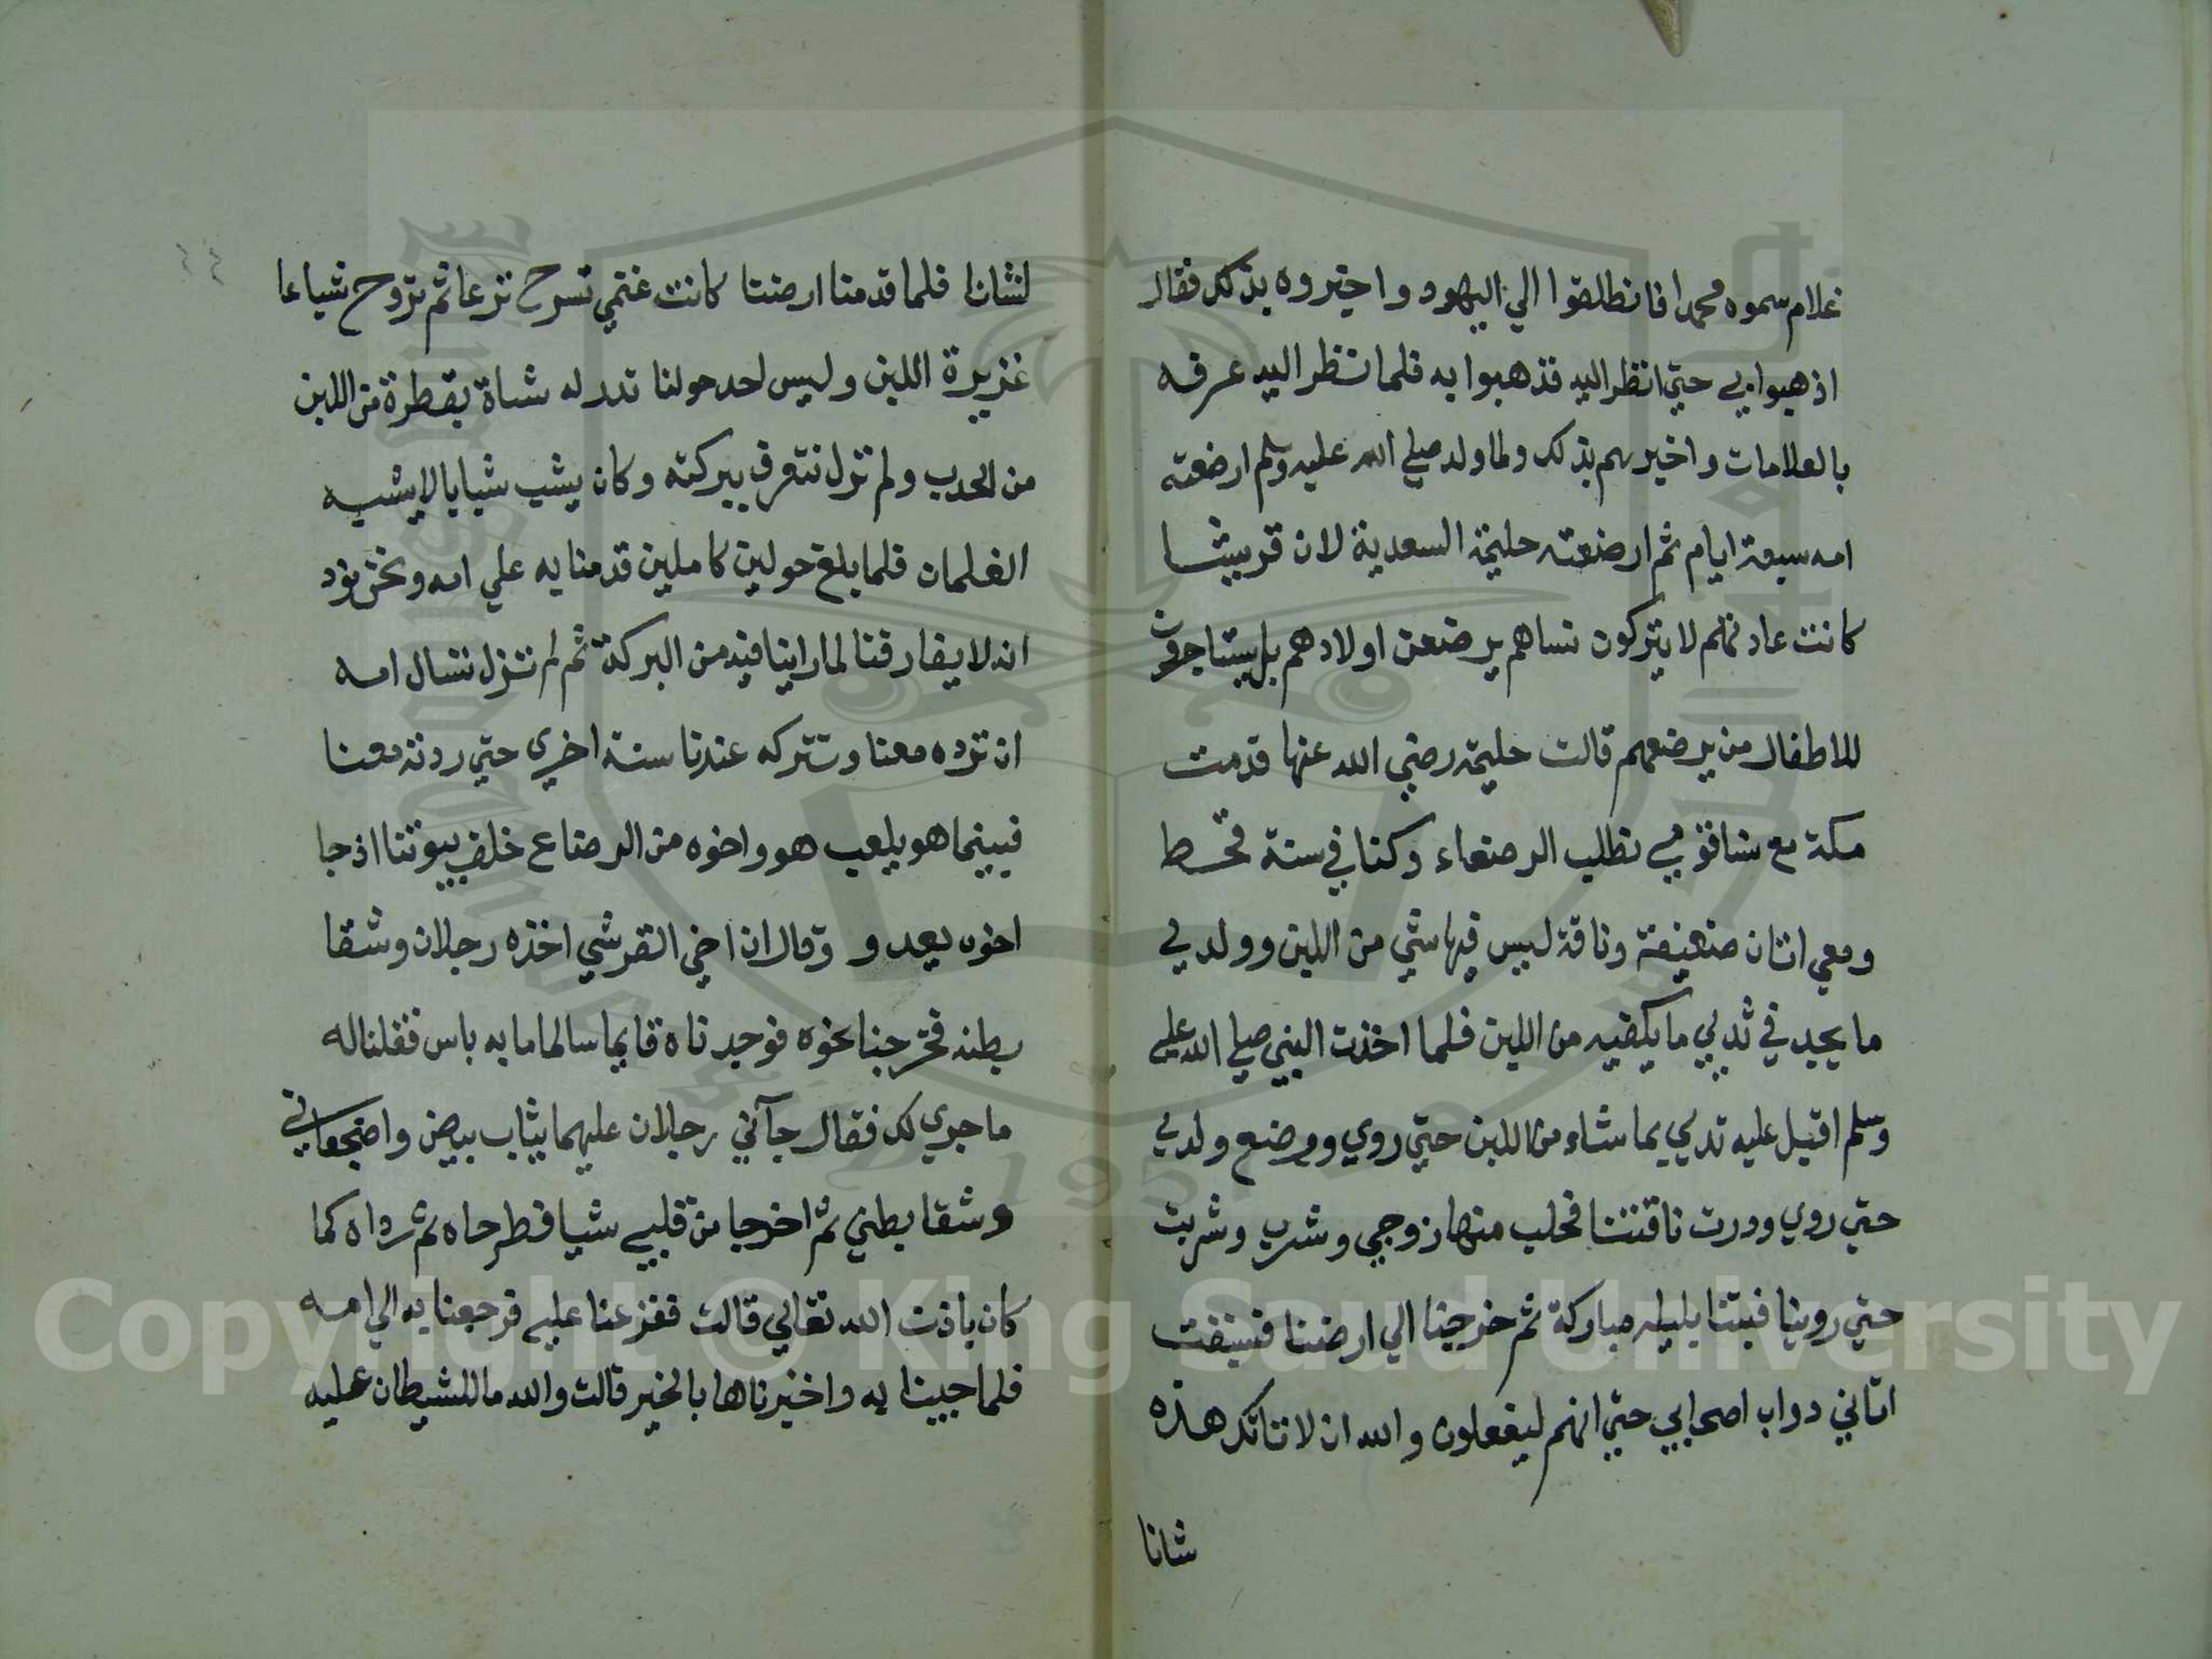 غلام سموه محمدا فانطلقوا الي اليهود واخبروه بذلك فقال
اذهبوا بي حتي انظر اليه فذهبوا به فلما نظر اليه عرفه
بالعلامات واخبرهم بذلك ولما ولد صلي الله عليه وسلم ارضعته
امه سبعة ايام ثم ارضعته حليمة السعدية لان قريشا
كانت عادتهم لا يتركون نساهم يرضعن اولادهم بل يستاجرون
للاطفال من يرضعهم قالت حليمة رضي الله عنها قدمت
مكة مع نساقومي نطلب الرضعاء وكنا في سنة قحط
ومعي اتان ضعيفة وناقة ليس فيها شي من اللبن وولدي
ما يجد في ثديي ما يكفيه من اللبن فلما اخذت النبي صلي الله عليه
وسلم اقبل عليه ثديي بما شاء من اللبن حتي روي ورضع ولدي
حتي روي ودرت ناقتنا فحلب منها زوجي وشرب وشربت
حتي روينا فبتنا بليلة مباركة ثم خرجنا الي ارضنا فسبقت
اتاني دواب اصحابي حتي انهم ليقولون والله ان لاتانك هذه
شانا
لشانا فلما قدمنا ارضنا كانت غنمي تسرح ترعا ثم تروح شباعا
غزيرة اللبن وليس لحد حولنا تدر له شاة بقطرة من اللبن
من الجدب ولم نزل نتعرف ببركته وكان يشب شبابا لا يشبه
الغلمان فلما بلغ حولين كاملين قدمنا به علي امه ونحن نود
انه لا يفارقنا لما راينا فيه من البركة ثم لم نزل نسال امه
ان ترده معنا وتتركه عندنا سنة اخري حتي ردته معنا
فبينما هو يلعب هو واخوه من الرضاع خلف بيوتنا اذ جا
اخوه يعدو وقال ان اخي القرشي اخذه رجلان وشقا
بطنه فخرجنا نحوه فوجدناه قايما سالما ما به باس فقلنا له
ما جري لك فقال جآني رجلان عليهما ثياب بيض واضجعاني
وشقا بطني ثم اخرجا من قلبي شيا فطرحاه ثم رداه كما
كان باذن الله تعالي قالت ففزعنا عليه فرجعنا به الي امه
فلما جينا به واخبرناها بالخبر قالت والله ما للشيطان عليه
Copyright © King Saud University